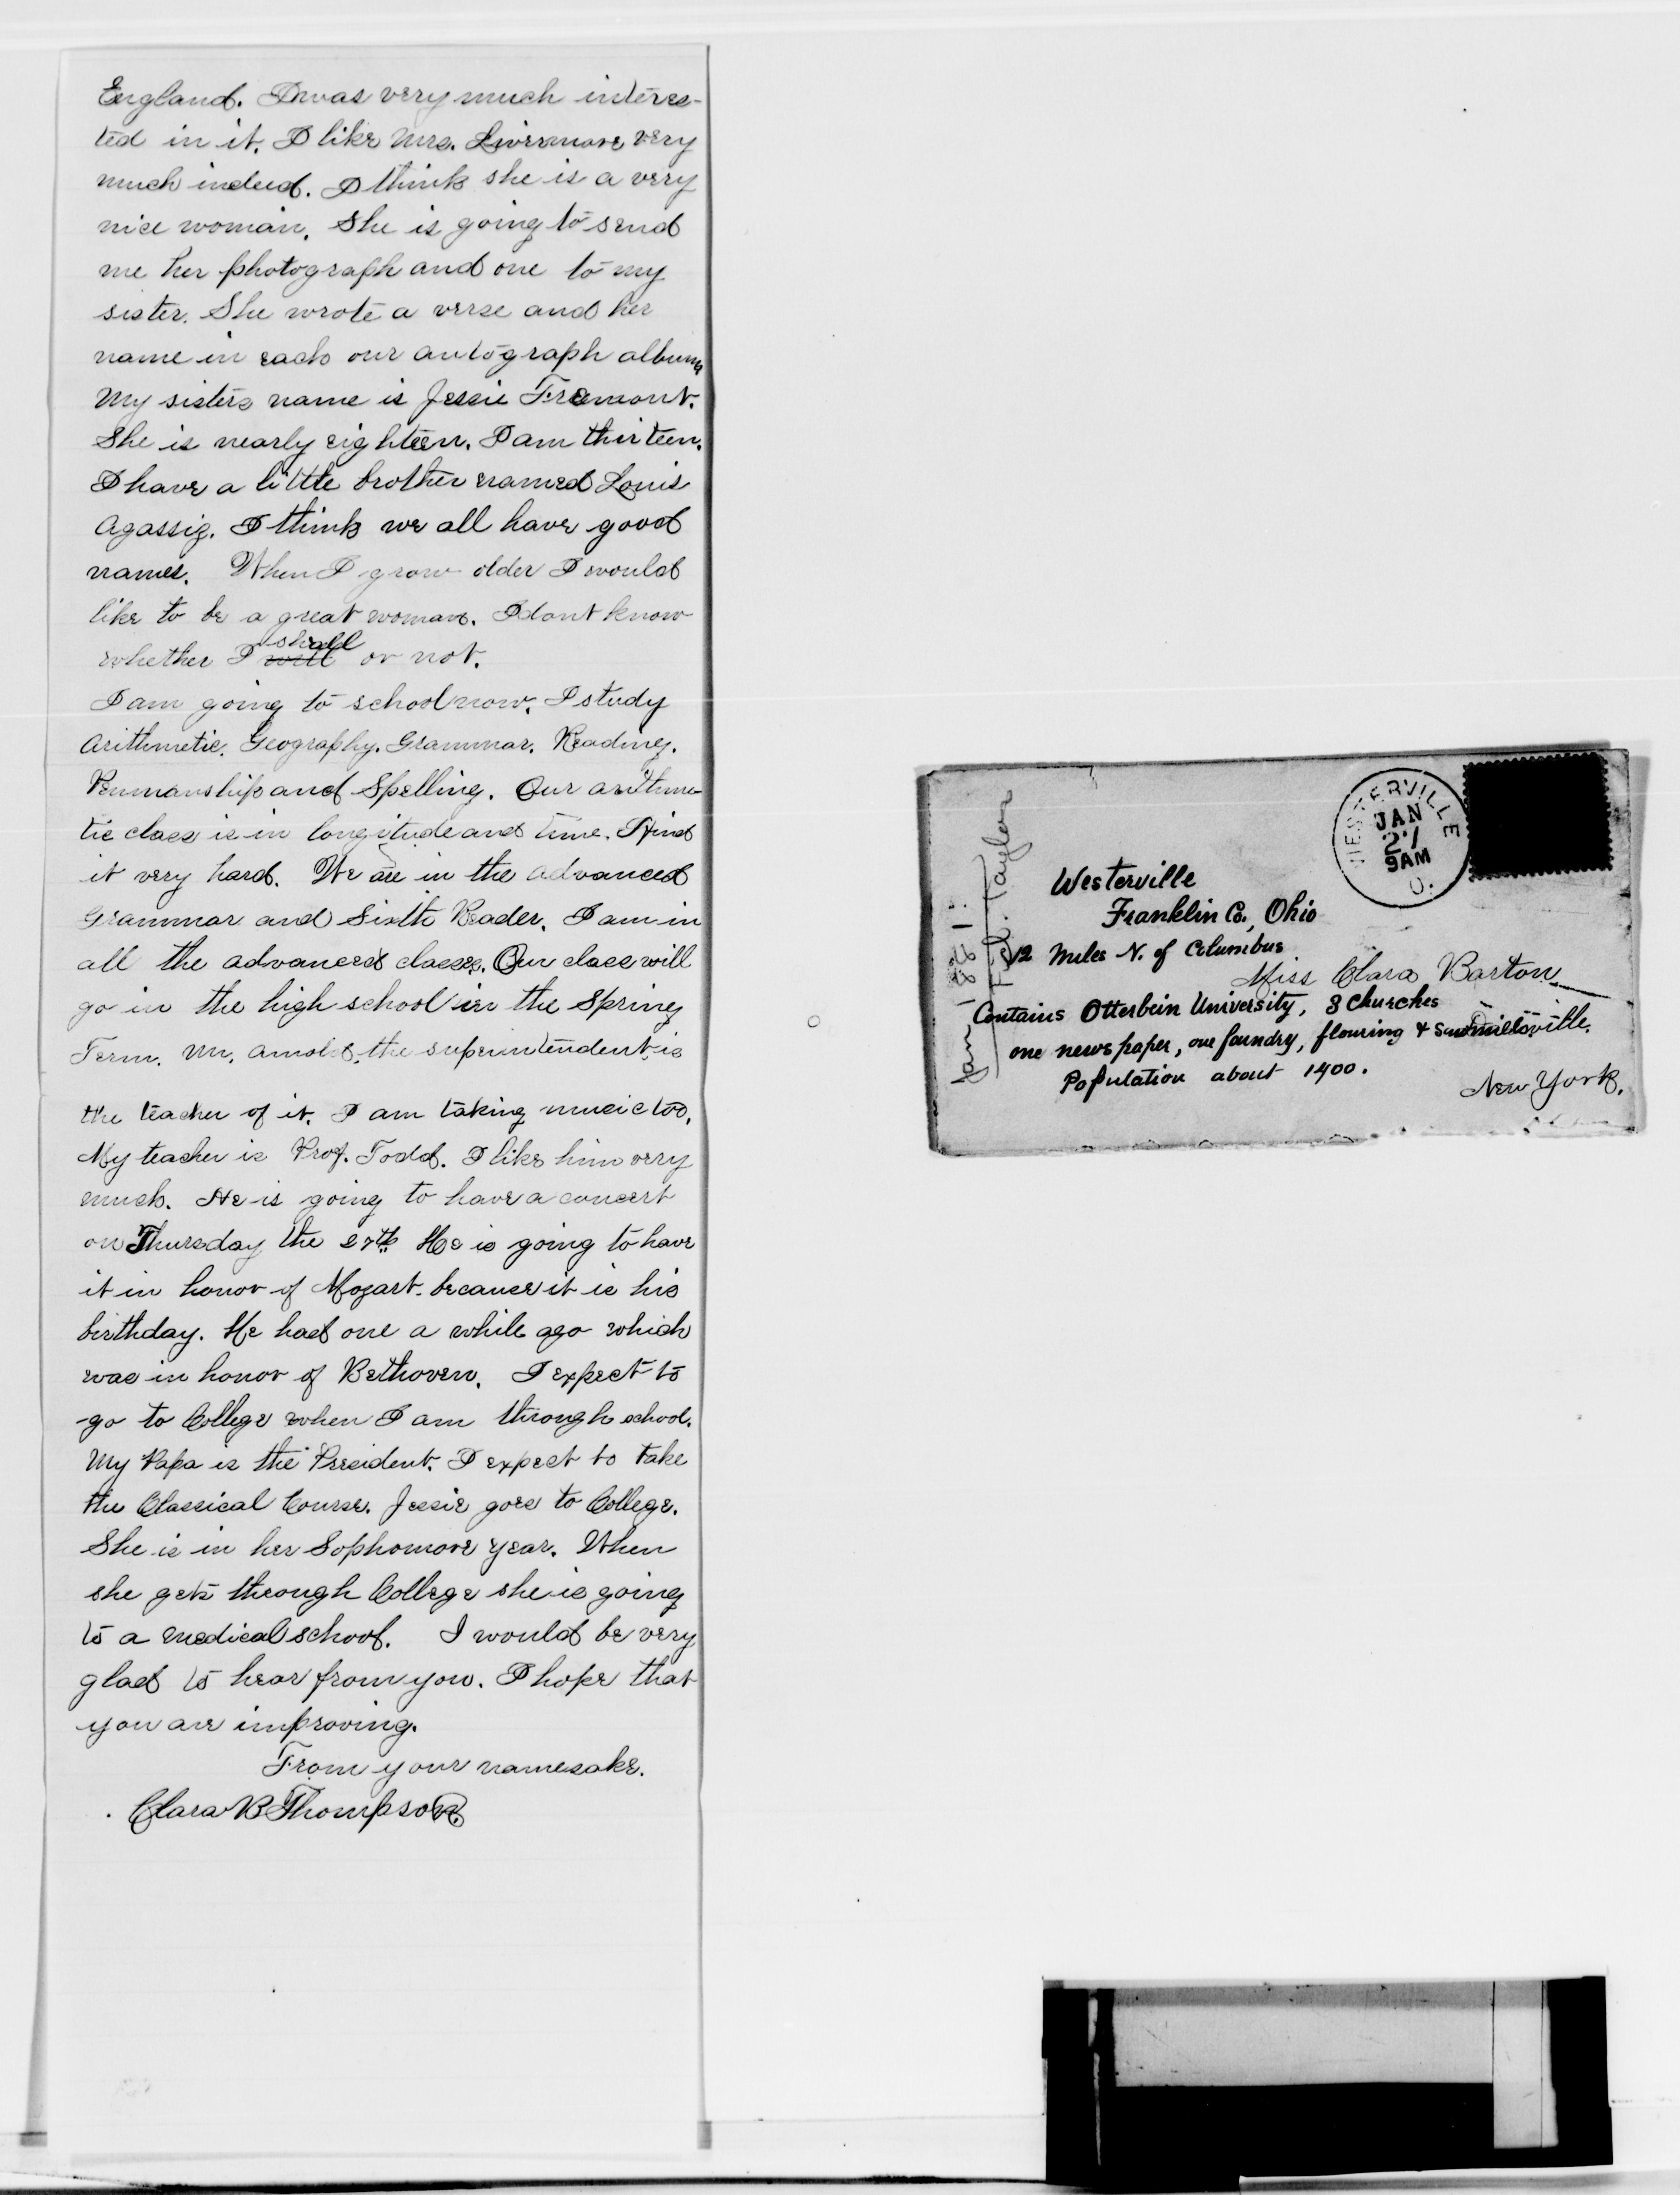 England. I was very much interes-
ted in it. I like Mrs. Livermore very
much indeed. I think she is a very
nice woman. She is going to send
me her photograph and one to my
sister. She wrote a verse and her
name in each our autograph albums
My sisters name is Jessie Fremont.
She is nearly eighteen. I am thirteen.
I have a little brother named Louis
Agassiz. I think we all have good
names. When I grow older I would
like to be a great woman. I dont know
shall
whether I will or not.
I am going to school now. I study
Arithmetic. Geography. Grammar. Reading.
Penmanship and Spelling. Our arithme-
tic class is in longitude and time. I find
it very hard. We are in the advanced
Grammar and Sixth Reader. I am in
all the advanced classes. Our class will
go in the high school in the Spring
Term. Mr. Arnold, the superintendent is
the teacher of it. I am taking music too.
My teacher is Prof. Todd. I like him very
much. He is going to have a concert
on Thursday the 27th He is going to have
it in honor of Mozart. because it is his
birthday. He had one a while ago which
was in honor of Bethoven. I expect to
go to College when I am through school.
My Papa is the President. I expect to take
the Classical Course. Jessie goes to College.
She is in her Sophomore year. When
she gets through College she is going
to a medical school. I would be very
glad to hear from you. I hope that
you are improving.
From your namesake.
Clara B Thompson.
WESTERVILLE
JAN
27
9AM
O.
Westerville
Franklin Co., Ohio
12 Miles N. of Columbus
Miss Clara Barton
Contains Otterbein University, 3 Churches
one newspaper, one foundry, flouring &
ville.
Population about 1400.
New York.
Jan 1881.
Taylor